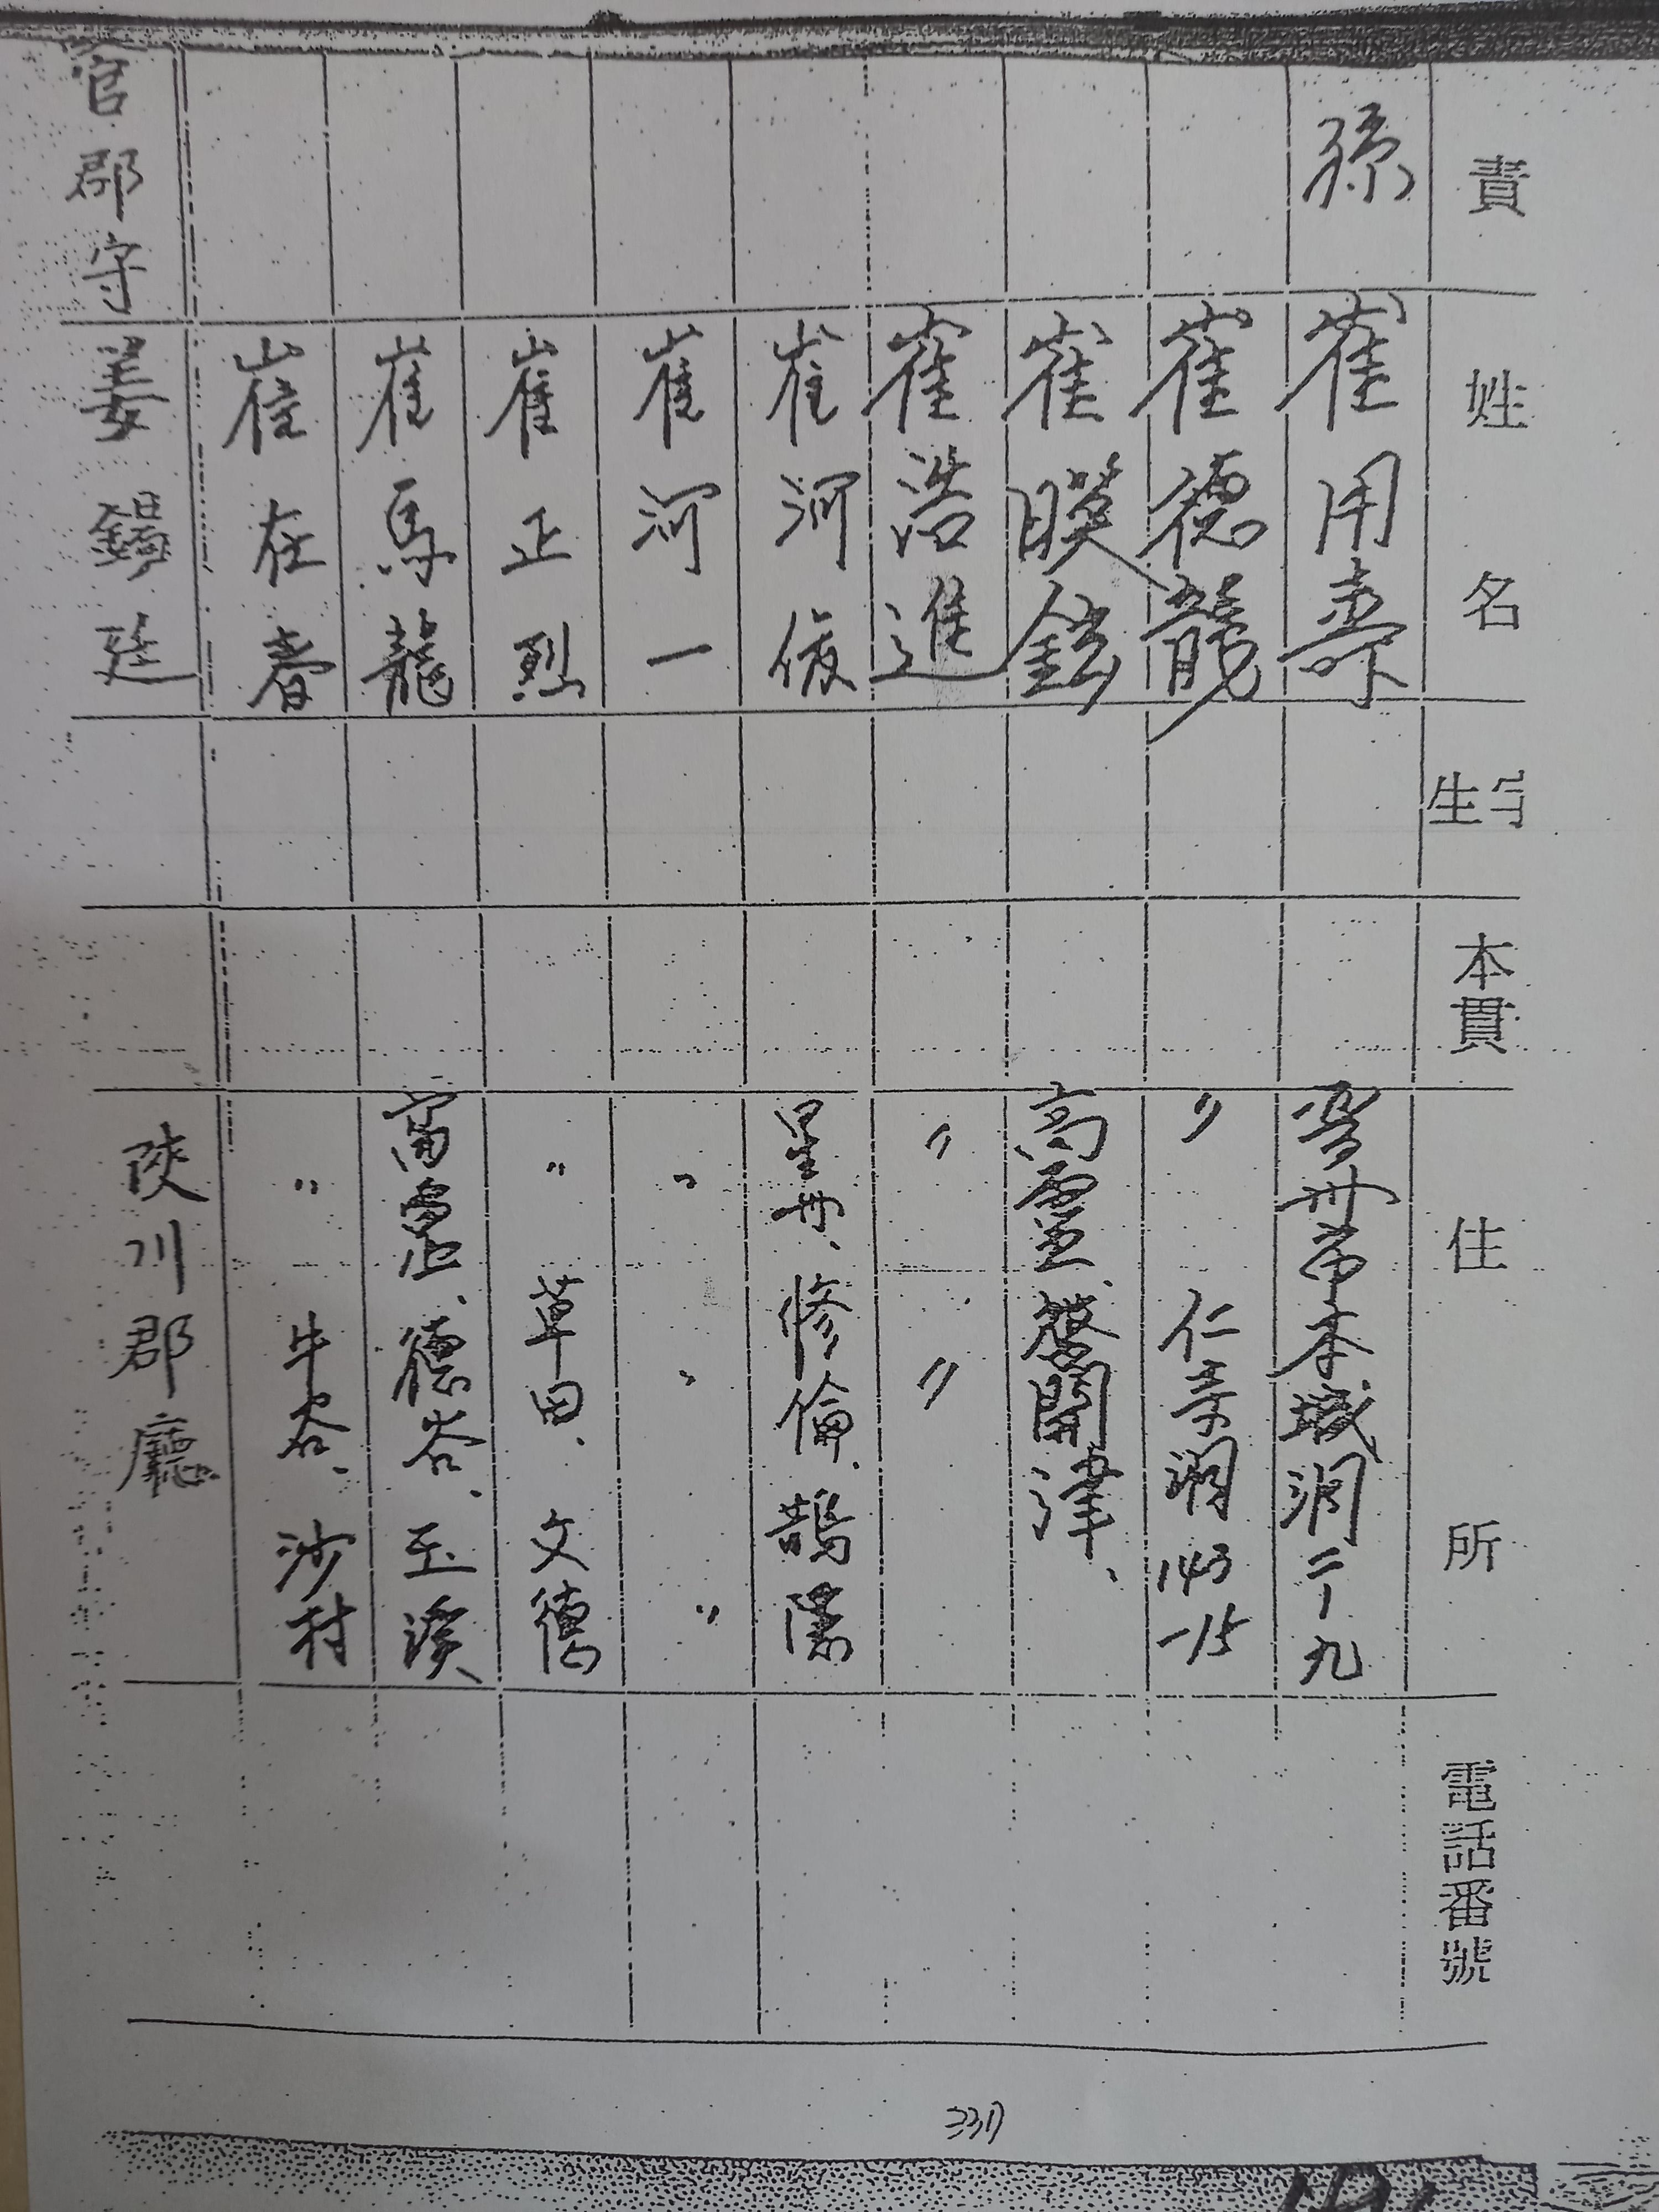 責 姓 名 生 本貫 住 所 電話番號
孫 崔用壽 晋州市本城洞二ー九
崔德龍 〃 仁寺洞 143-15
崔暎鉉 高靈、開津、
崔浩進 〃 〃
崔河俊 星州、修倫、鵲隱
崔河一 〃 〃 〃
崔正烈 〃 草田、文德
崔馬龍 高靈、德谷、玉溪
崔在春 〃 牛谷、沙村
官郡守 姜錫廷 陜川郡廳